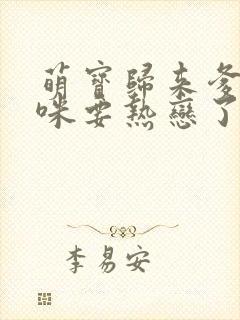 萌寶歸來爹
咪要熱戀了
李易安